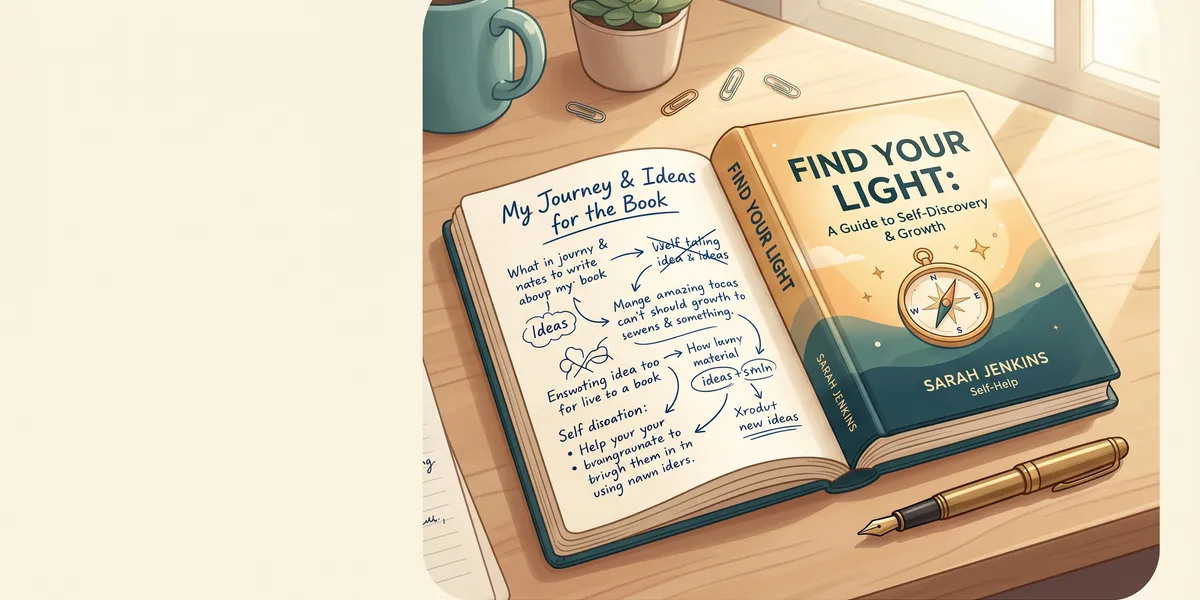 My Journey & Ideas
for the Book
What in journy &
nates to write
aboup my. book
Welf tating
idea & Ideas
Mange amazing tocas
can't should growth to
sewens & something.
Ideas
How lavny
material
ideas + smln
Enswoting idea too
for live to a book
Xrodut
new ideas
Self disoation:
• Help your your
• braungraunate to
briugh them in tn
using nawn iders.
FIND YOUR LIGHT
SARAH JENKINS
FIND YOUR
LIGHT:
A Guide to Self-Discovery
& Growth
N
E
W
S
SARAH JENKINS
Self-Help